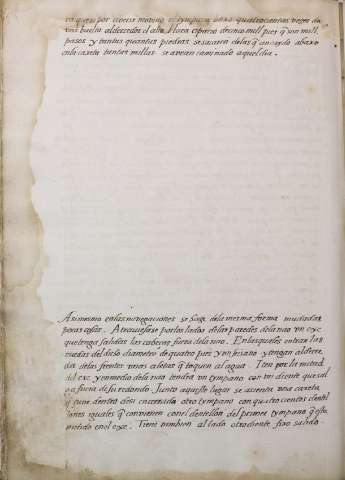 por moverse mayor el tympano baxo quatrocientas vezes da
una buelta alderredor el alto. Hara espacio de cinco mill pies q̃ son mill
pasos y tantas quantas piedras se sacaren delas q̃ an caydo abaxo
en la caxeta tantas millas se avran caminado aquel dia.
Asi mesmo en las navegaciones se haze dela mesma forma mudadas
pocas cosas. Atraviesase por los lados delas paredes dela nao un exe
que tenga salidas las cabeças fuera dela nao. En las quales entran las
ruedas del dicho diametro de quatro pies y un sesmo y tengan alderre
dor delas frentes unas aletas q̃ toquen al agua. Iten por la mitad
del exe y en medio dela nao tendra un tympano con un diente que sal
ga fuera de su redondez. Junto aqueste lugar se asienta una caxeta
q̃ tiene dentro de si encerrado otro tympano con quatrocientos dentel
lones iguales q̃ convienen con el dentellon del primer tympano q̃ esta
metido en el exe. Tiene tambien al lado otro diente fixo salido